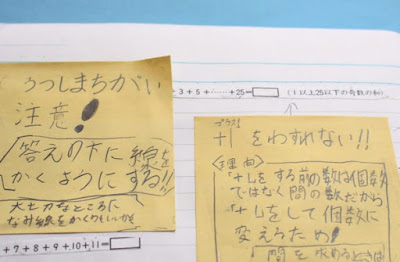 +3+5+……+25=
(1以上25以下の奇数の和)
うつしまちがい
注意!
答えの下に線を
かくようにする!!
大七力なところに
なみ線をかくのもいいかも
+7+8+9+10+11=
プラス1
+1をわすれない!!
(理由)
「+1」をする前の数は個数
ではなく間の数だから
「+1」をして個数に
変えるため!
「間を求めるときは